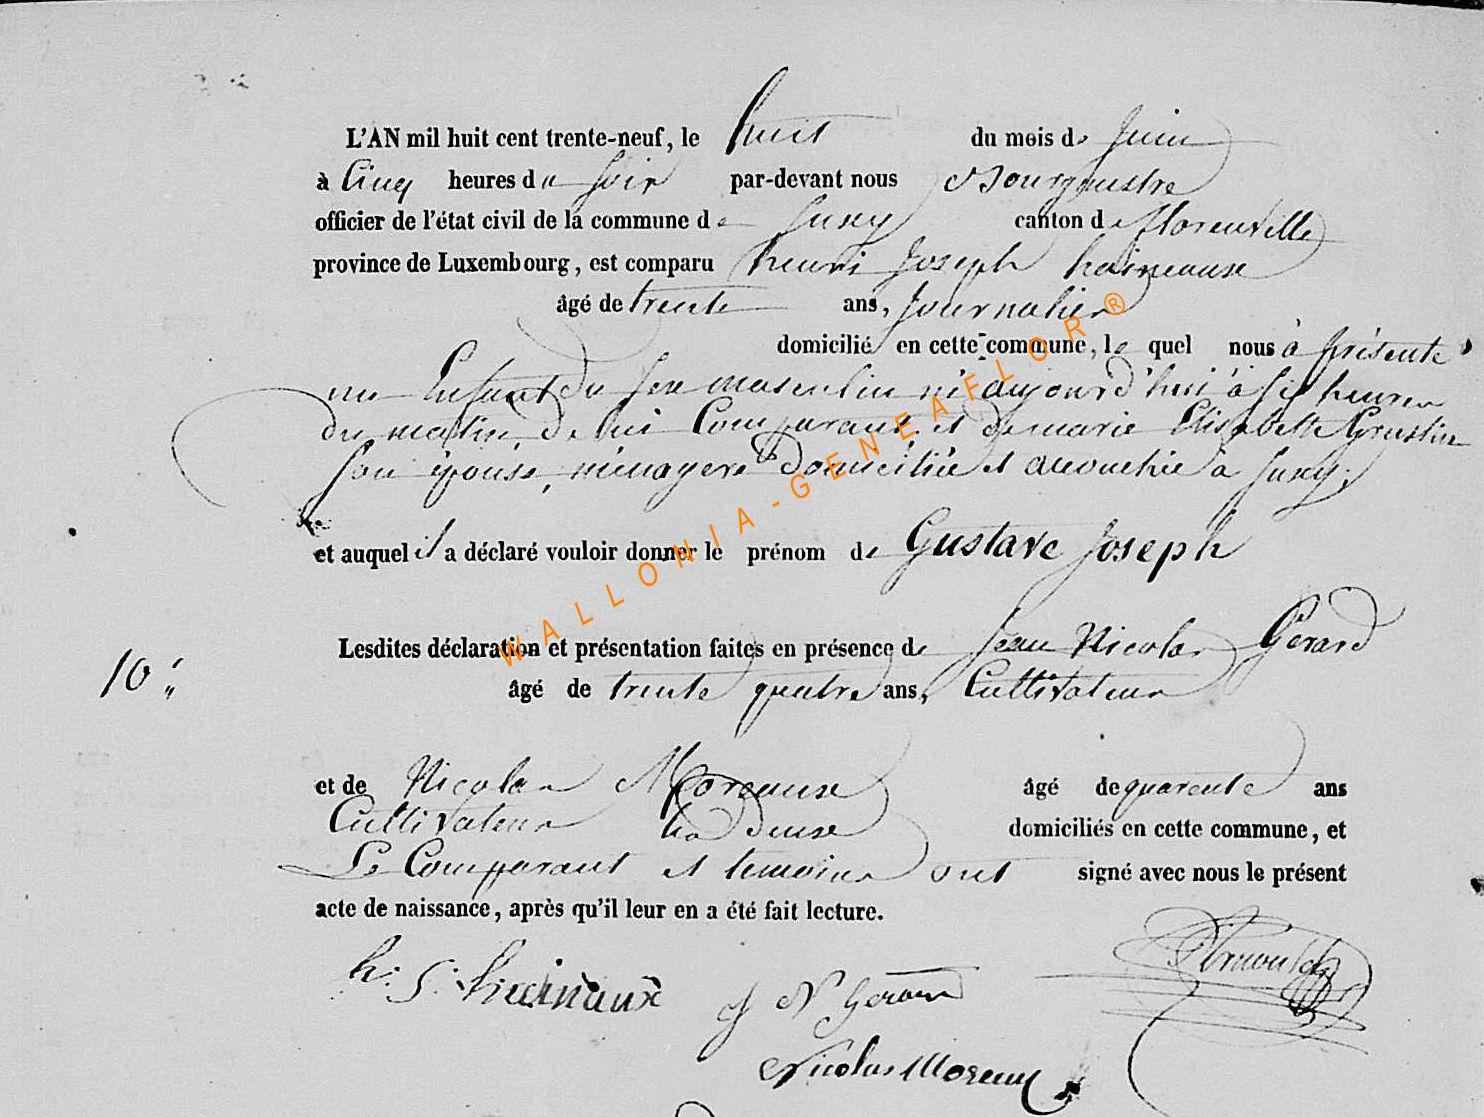 L'AN mil huit cent trente-neuf, le huit du mois de juin
à Cinq heures du soir par-devant nous Bourgmestre
officier de l'état civil de la commune de Suxy canton de florenville
province de Luxembourg, est comparu henri Joseph haineaux
âgé de trente ans, Journalier
domicilié en cette commune, le quel nous à présenté
un Enfant du sexe masculin né aujourd'hui à six heures
du matin De lui Comparant et de marie Elisabette
son épouse, ménagere domiciliée et accouchée à Suxy,
et auquel il a déclaré vouloir donner le prénom de Gustave Joseph
Lesdites déclaration et présentation faites en présence de Jean Nicolas Gerard
10.
âgé de trente quatre ans, Cultivateur
et de Nicolas Moreaux âgé de quarente ans
Cultivateur domiciliés en cette commune, et
Le Comparant et temoins ont signé avec nous le présent
acte de naissance, après qu'il leur en a été fait lecture.
h. J. heinaux
J N Gerard
Nicolas Moreaux
WALLONIA-GENEAFLOR®